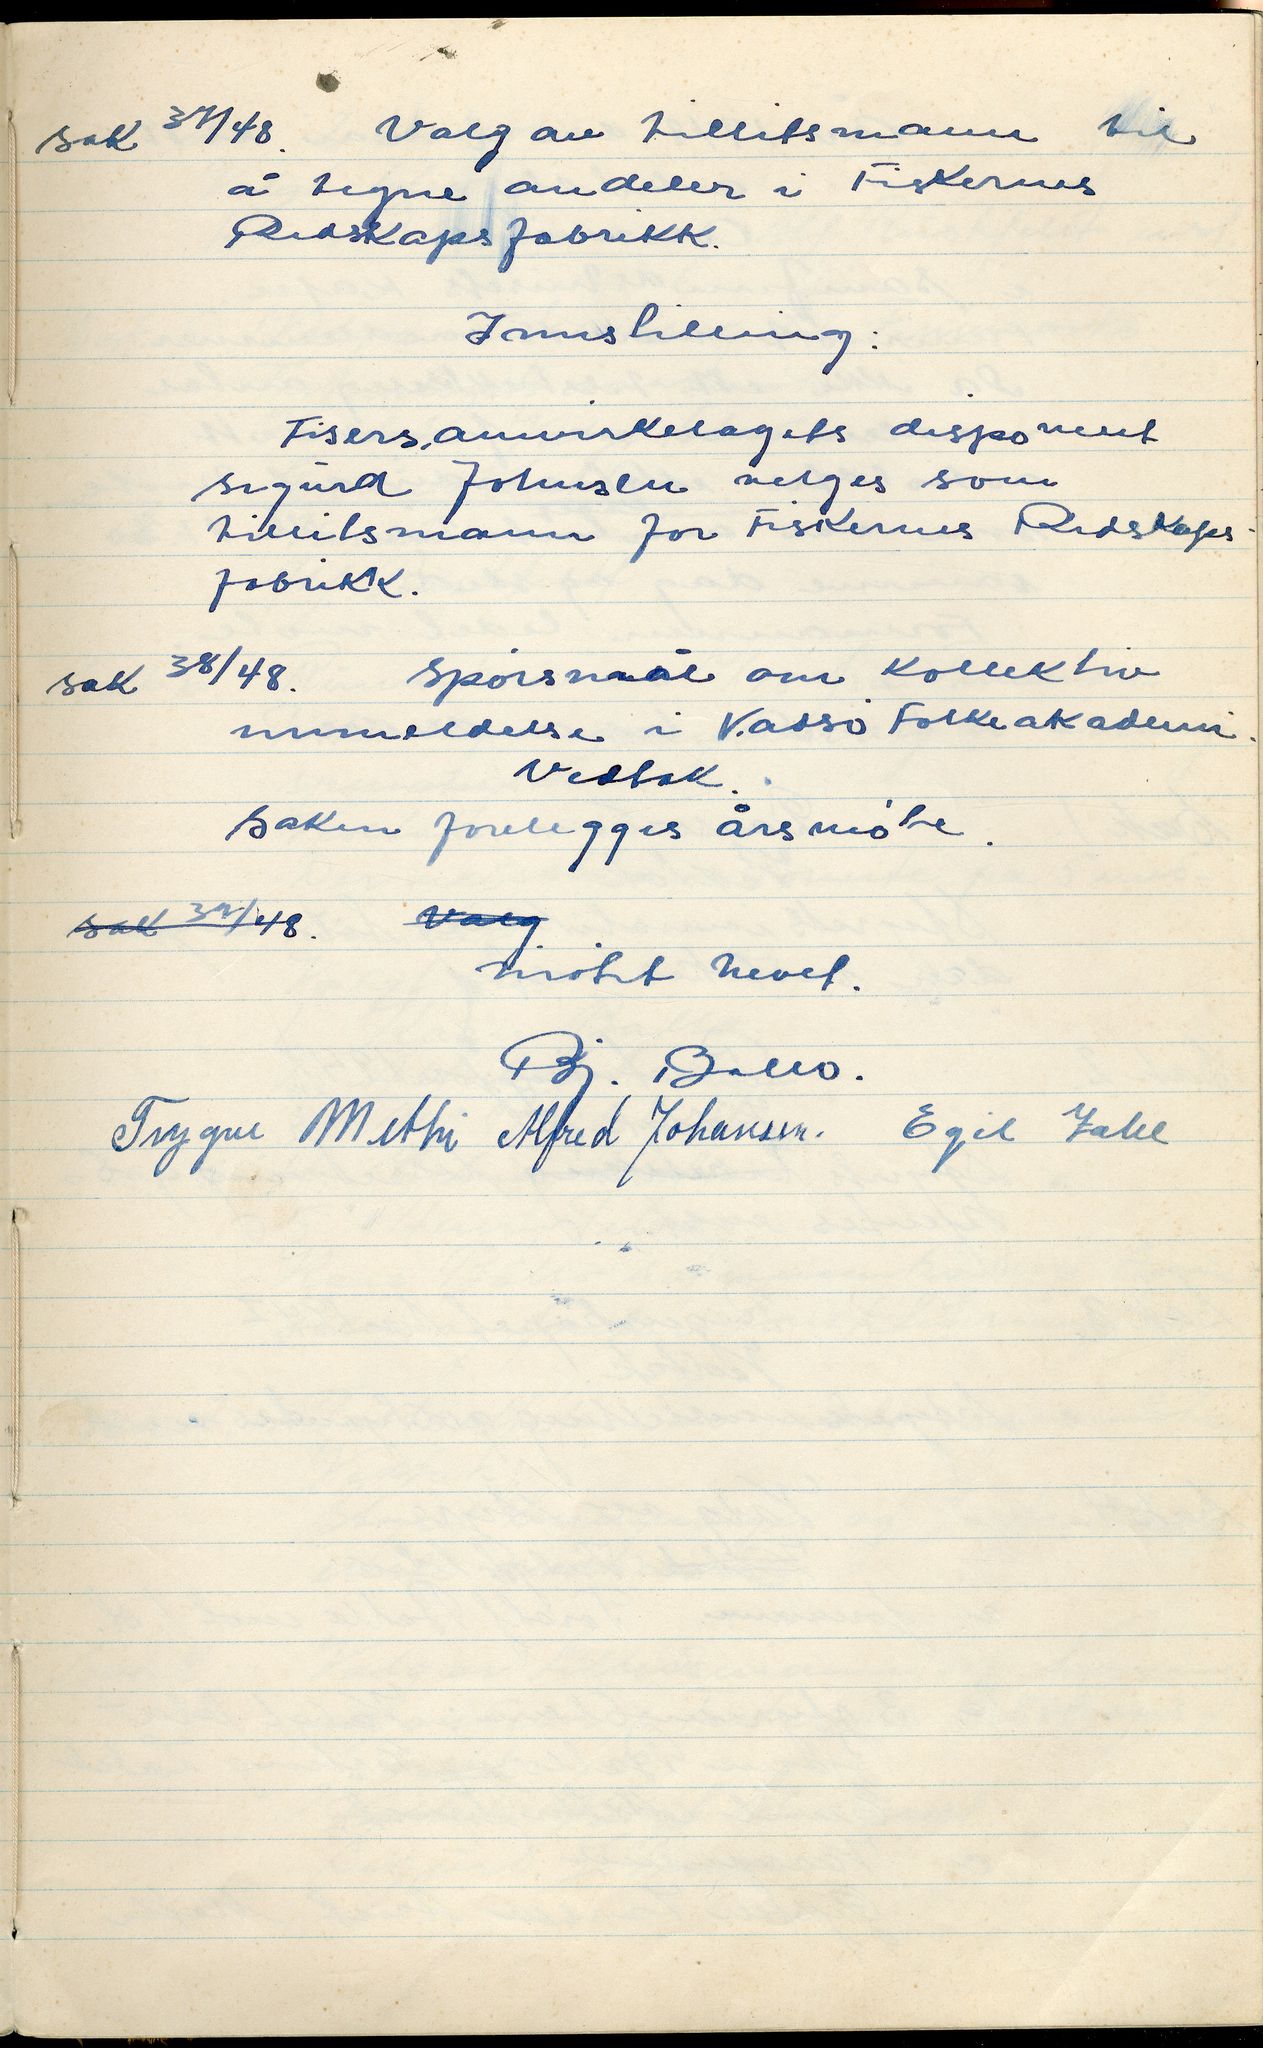 sak 37/48. Valg av tillitsmann til
å tegne andeler i Fiskernes
Redskapsfabrikk.
Innstilling:
Fisersamvirkelagets disponent
Sigurd Johnsen velges som
tillitsmann for Fiskernes Redskaps-
fabrikk.
sak 38/48. Spörsmaal om kollektiv
innmeldelse i Vadsö Folkeakademi.
Vedtak.
Saken forelegges årsmöte.
sak 39/48. Valg
mötet hevet.
Bj. Ballo.
Trygve Methi Alfred Johansen. Egil Zahl